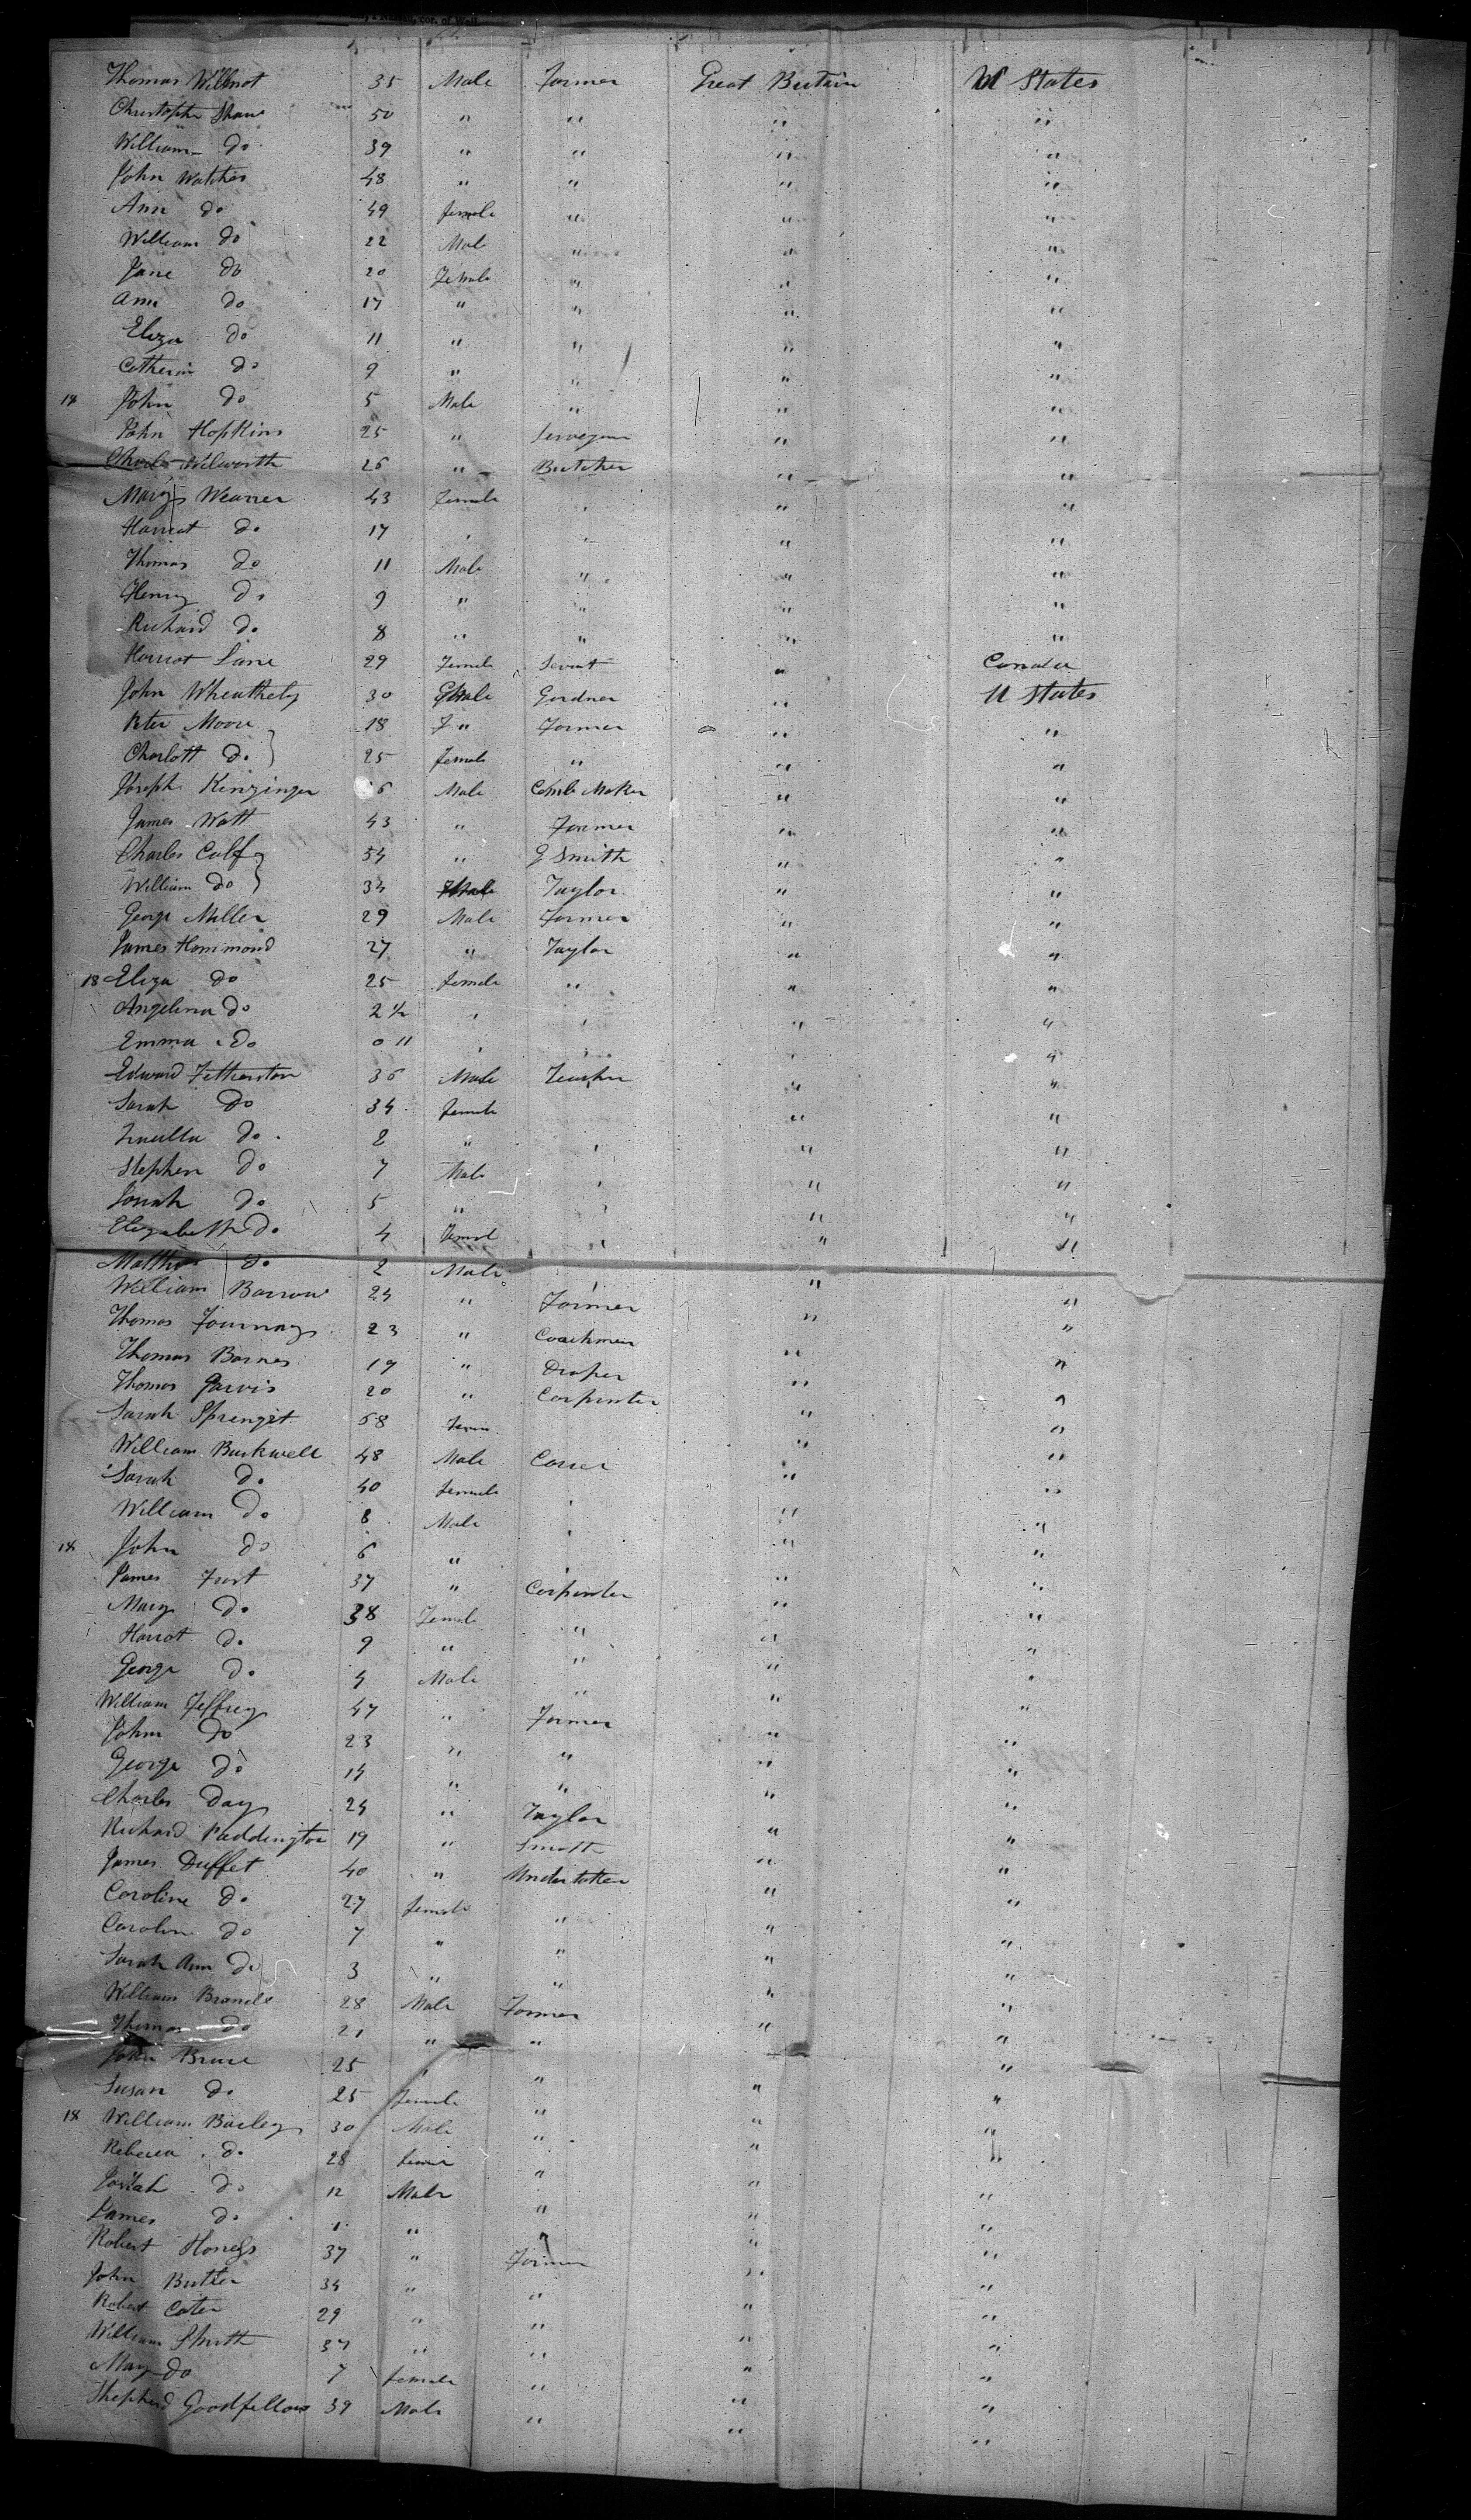 cor. of Wall
Thomas Willmot 35 Male Farmer Great Britain U States
Christopher Shaw 50 " " " "
William Do 39 " " " "
John Watches 48 " " " "
Ann do 49 female " " "
William do 22 Male " " "
Jane do 20 Female " " "
Ann do 17 " " " "
Eliza do 11 " " " "
Catherin do 9 " " " "
18 John do 5 Male " " "
John Hopkins 25 " " "
Charles Wilworth 26 " Butcher " "
Mary Weaver 43 female " "
Harriot do 17 " "
Thomas do 11 Male " " "
Henry do 9 " " " "
Richard do 8 " " " "
Harriot Lane 29 Female Servt " Canada
John Wheathely 30 Male Gardner " U States
Peter Moore 18 " Farmer " "
Charlott do 25 female " " "
Joseph Kinzinger 6 Male Comb Maker " "
James Watt 43 " Farmer " "
Charles Calf 54 " G Smith " "
William do 34 Male Taylor " "
George Miller 29 Male Farmer " "
James Hammond 27 " Taylor " "
18 Eliza do 25 female " " "
Angelina do 2 1/2 " "
Emma do 0 11 " "
Edward Fetherston 36 Male Teacher " "
Sarah Do 34 female " "
do 8 " " "
Stephen do 7 Male " "
do 5 " " "
Elizabeth do 4 Femal " "
Matthew do 2 Male " "
William Barrow 24 " Farmer " "
Thomas 23 " Coachman " "
Thomas Barnes 19 " Draper " "
Thomas Jarvis 20 " Carpenter " "
Sarah Springet 68 Fem " "
William Buckwell 48 Male " "
Sarah do 40 female " "
William do 8 Male " "
18 John do 6 " " "
James 37 " Carpenter " "
Mary do 38 Female " " "
Harrot do 9 " " " "
George do 4 Male " " "
William Jeffrey 47 " Farmer " "
John Do 23 " " " "
George do 14 " " " "
Charles Day 24 " Taylor " "
Richard Paddington 19 " Smith " "
James Duffet 40 " Undertaker " "
Caroline do 27 female " " "
Caroline do 7 " " " "
Sarah Ann do 3 " " " "
William 28 Male Farmer " "
Thomas do 21 " " "
John Bruce 25 " " "
Susan do 25 female " " "
18 William Bailey 30 Male " " "
Rebecca do 28 " " "
Josiah do 12 Male " " "
James do 1 " " " "
Robert 37 " Farmer " "
John Butler 34 " " " "
Robert Cater 29 " " " "
William Smith 37 " " " "
Mary do 7 female " " "
Shepherd Goodfellow 39 Male " " "